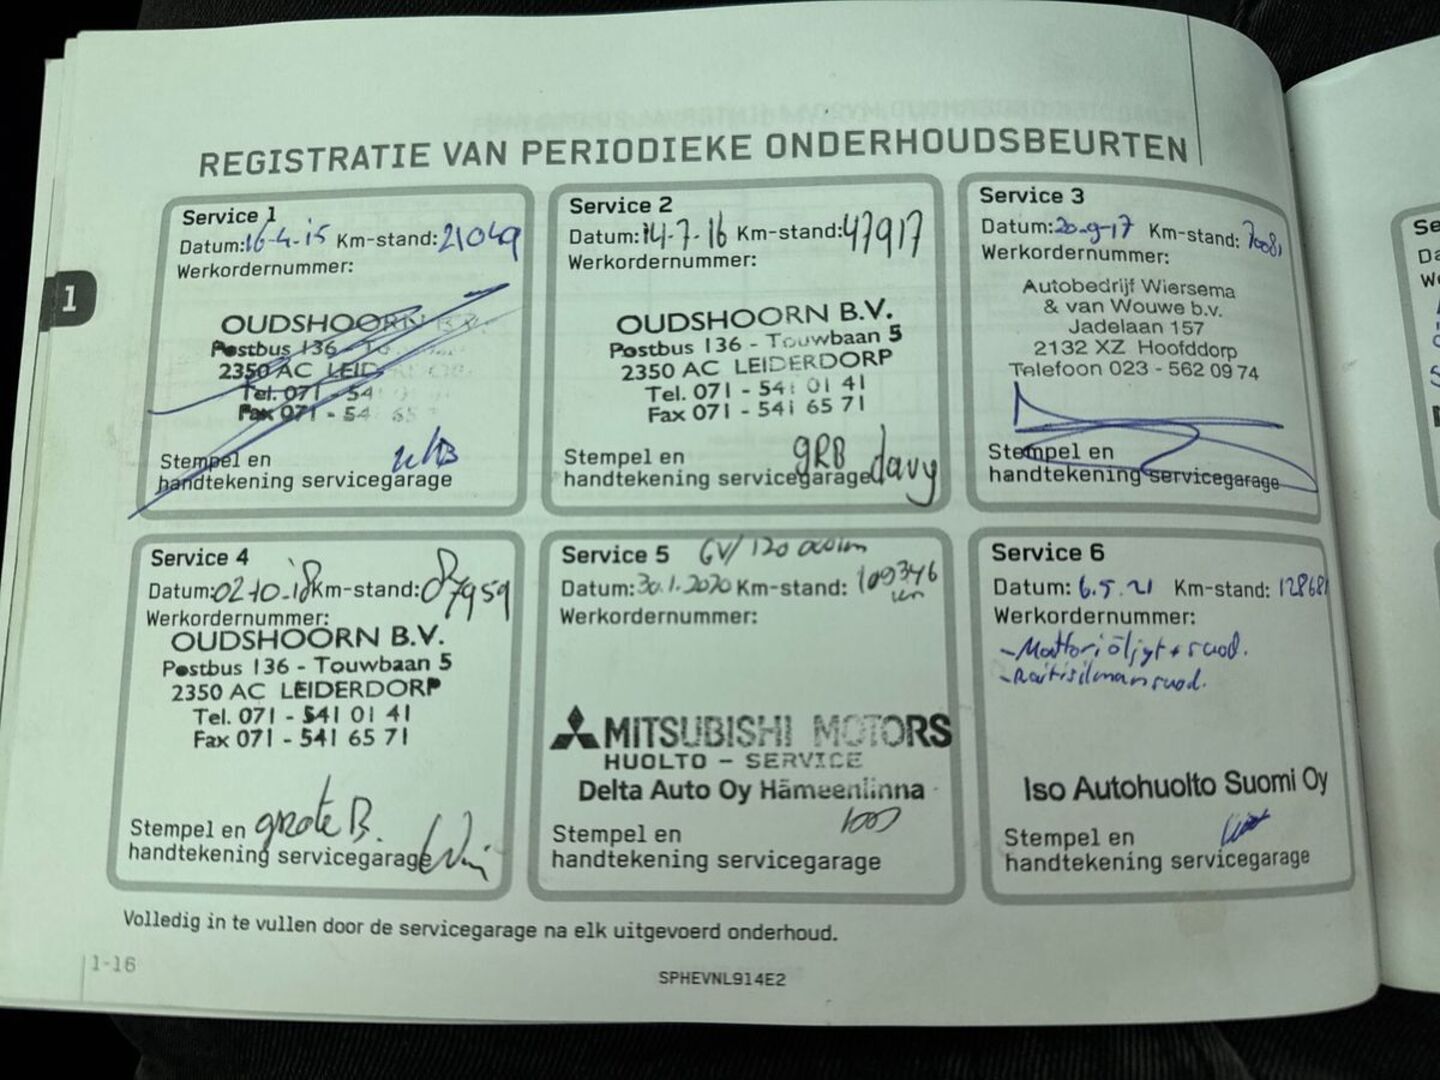 REGISTRATIE VAN PERIODIEKE ONDERHOUDSBEURTEN
1
Service 1
Datum: 16-4-15 Km-stand: 21049
Werkordernummer:
OUDSHOORN B.V.
Postbus 136 - To
2350 AC LEID
Tel. 071 - 54
Fax 071 - 54 65
Stempel en
handtekening servicegarage
Service 2
Datum: 14-7-16 Km-stand: 47917
Werkordernummer:
OUDSHOORN B.V.
Postbus 136 - Touwbaan 5
2350 AC LEIDERDORP
Tel. 071 - 541 01 41
Fax 071 - 541 65 71
Stempel en GRB
handtekening servicegarage davy
Service 3
Datum: 20-9-17 Km-stand: 70081
Werkordernummer:
Autobedrijf Wiersema
& van Wouwe b.v.
Jadelaan 157
2132 XZ Hoofddorp
Telefoon 023 - 562 09 74
Stempel en
handtekening servicegarage
Service 4
Datum: 02-10-18 Km-stand: 87959
Werkordernummer:
OUDSHOORN B.V.
Postbus 136 - Touwbaan 5
2350 AC LEIDERDORP
Tel. 071 - 541 01 41
Fax 071 - 541 65 71
Stempel en grote B.
handtekening servicegarage
Service 5 GV/120 000km
Datum: 30.1.2020 Km-stand: 109346
km
Werkordernummer:
MITSUBISHI MOTORS
HUOLTO - SERVICE
Delta Auto Oy Hämeenlinna
Stempel en
handtekening servicegarage
Service 6
Datum: 6.5.21 Km-stand: 128681
Werkordernummer:
- Moottoriöljyt + suod.
- Raitisilmansuod.
Iso Autohuolto Suomi Oy
Stempel en
handtekening servicegarage
Volledig in te vullen door de servicegarage na elk uitgevoerd onderhoud.
1-16
SPHEVNL914E2